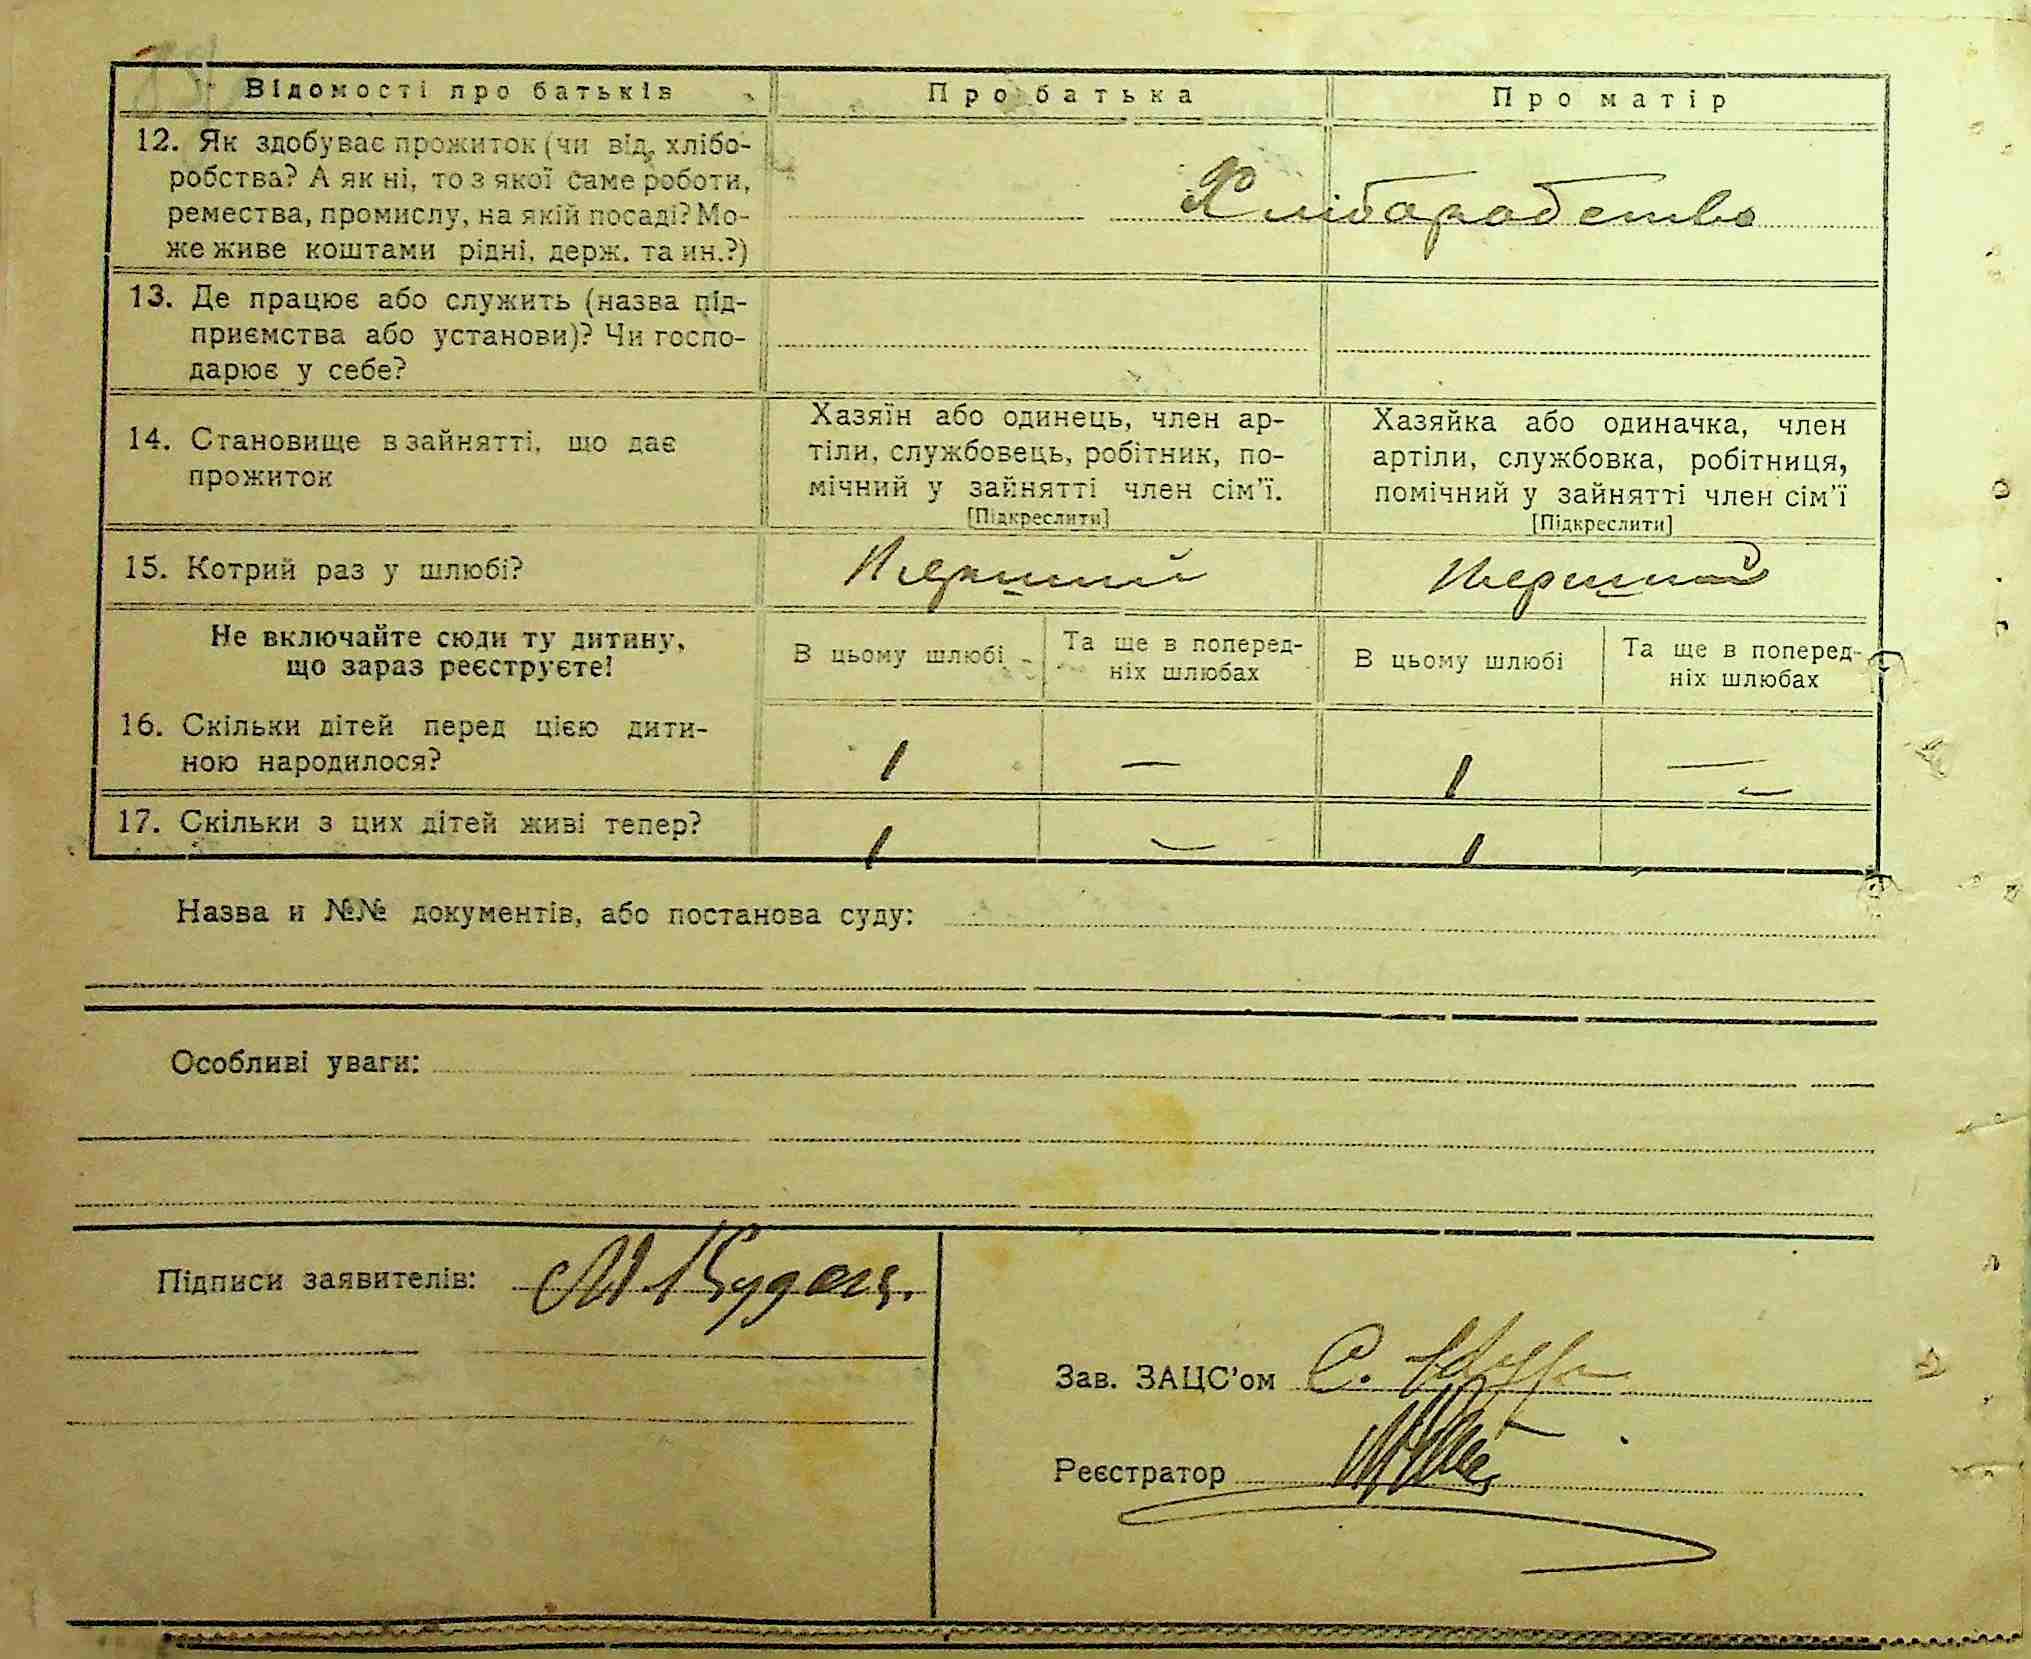 Відомості про батьків Про батька Про матір
12. Як здобуває прожиток (чи від хлібо-
робства? А як ні, то з якої саме роботи,
ремества, промислу, на якій посаді? Мо-
же живе коштами рідні, держ. та ин.?)
Хліборобство
13. Де працює або служить (назва під-
приємства або установи)? Чи госпо-
дарює у себе?
14. Становище в зайнятті, що дає
прожиток
Хазяїн або одинець, член ар-
тіли, службовець, робітник, по-
мічний у зайнятті член сім'ї.
[Підкреслити]
Хазяйка або одиначка, член
артіли, службовка, робітниця,
помічний у зайнятті член сім'ї
[Підкреслити]
15. Котрий раз у шлюбі? Перший Перший
Не включайте сюди ту дитину,
що зараз реєструєте!
В цьому шлюбі
Та ще в поперед-
ніх шлюбах
В цьому шлюбі
Та ще в поперед-
ніх шлюбах
16. Скільки дітей перед цією дити-
ною народилося?
1 — 1 —
17. Скільки з цих дітей живі тепер? 1 — 1 —
Назва и №№ документів, або постанова суду:
Особливі уваги:
Підписи заявителів:
Зав. ЗАЦС'ом С.
Реєстратор